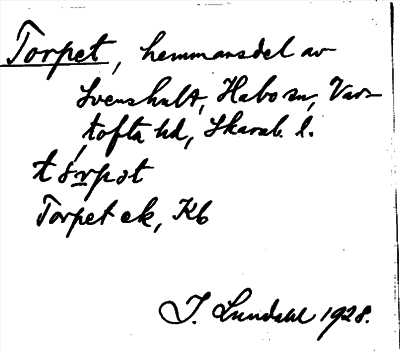 Torpet, hemmansdel av
Svenshult, Habo sn, Var-
tofta hd, Skarab. l.
Torpet ek, Kb
I. Lundahl 1928.